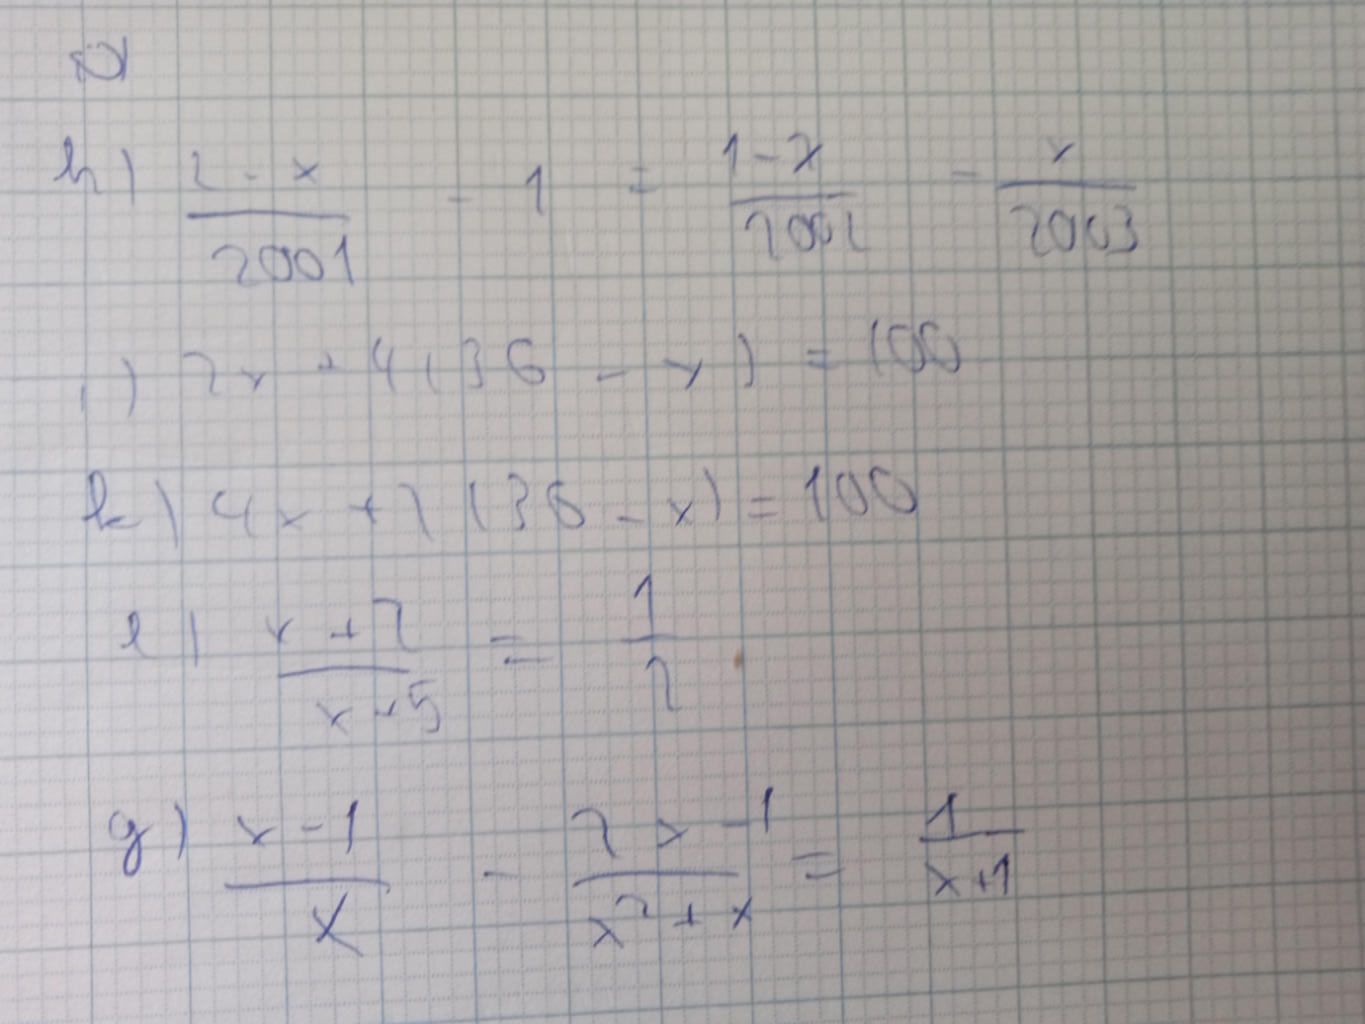 h) (2 - x)/2001 - 1 = (1 - x)/2002 - x/2003
i) 2x + 4(36 - x) = 100
k) 4x + 2(36 - x) = 100
l) (x + 2)/(x + 5) = 1/2
g) (x - 1)/x - (2x - 1)/(x² + x) = 1/(x + 1)